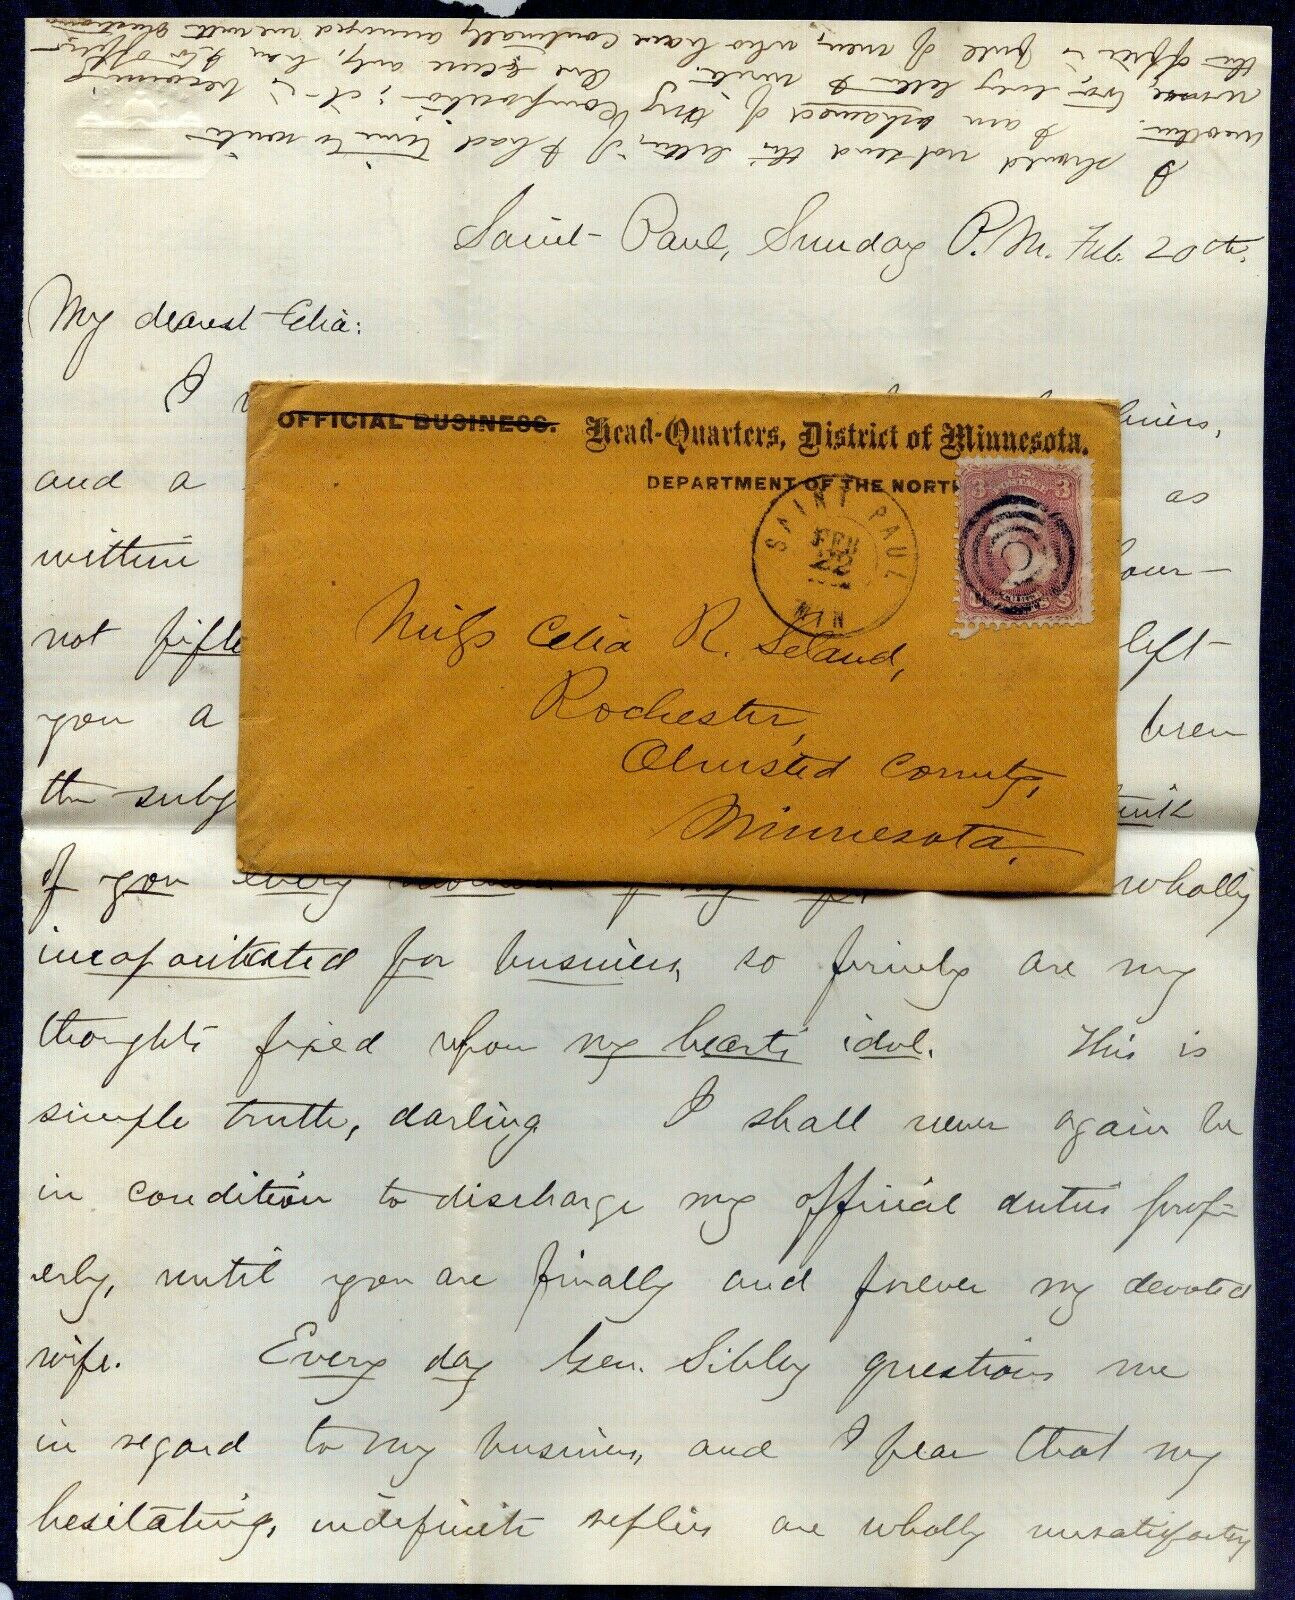 I should not send this letter, if I had time to write
another. I am ashamed of my composition; it is becoming
worse, with every letter I write. We seem only, have for office
the office is full of men, who have continually annoyed me with
Saint Paul, Sunday P.M. Feb. 20th.
My dearest Celia:
I
and a as
within hour—
not left
you a been
the
of you every wholly
incapacitated for business, so firmly are my
thoughts fixed upon my heart's idol. This is
simple truth, darling I shall never again be
in condition to discharge my official duties prop-
erly, until you are finally and forever my devoted
wife. Every day Gen. Sibley questions me
in regard to my business, and I fear that my
hesitating, indefinite replies are wholly unsatisfactory
OFFICIAL BUSINESS. Head-Quarters, District of Minnesota.
DEPARTMENT OF THE NORTH
SAINT PAUL
FEB
22
MIN
U.S. POSTAGE
3 3
Miss Celia R. Leland,
Rochester,
Olmsted County,
Minnesota.